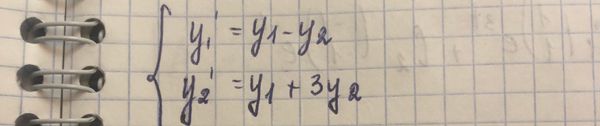 y₁' = y₁ - y₂
y₂' = y₁ + 3y₂